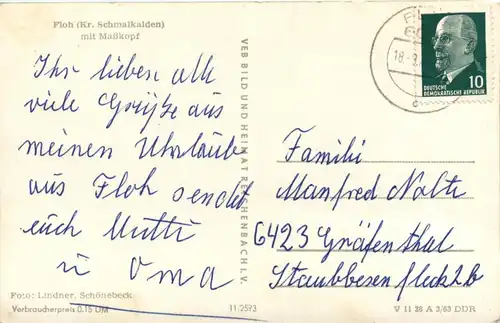 Floh (Kr. Schmalkalden)
mit Maßkopf
Ihr lieben alle
viele Grüße aus
meinen Uhrlaub
aus Floh sendet
euch Mutti
u Oma
Foto: Lindner, Schönebeck
Verbraucherpreis 0.15 DM
11/2573
VEB BILD UND HEIMAT REICHENBACH I. V.
18.
DEUTSCHE
DEMOKRATISCHE REPUBLIK
10
Familie
Manfred Nolte
6423 Gräfenthal
V 11 28 A 3/63 DDR